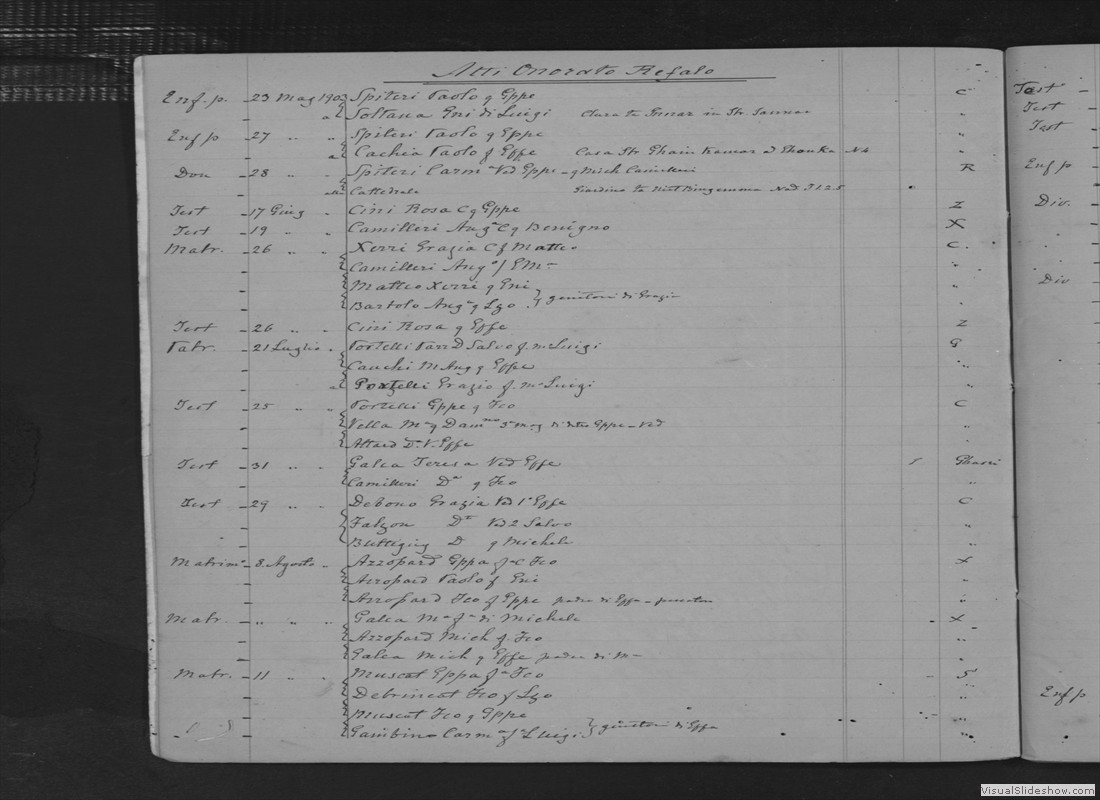 Atti Onorato Refalo
Enf. p. - 23 Mag 1903 Spiteri Paolo q Gppe C
a Soltana Gni di Luigi in Str. "
Enf p - 27 " " Spiteri Paolo q Gppe "
a Cachia Paolo f Gppe Casa Str. Ghain N4 "
Don - 28 " " Spiteri Carma Ved Gppe - q Mich Camilleri R
alla Cattedrale Giardino ta
Test - 17 Giug " Cini Rosa C q Gppe Z
Test - 19 " " Camilleri Anga C q Benigno X
Matr. - 26 " " Xerri Grazia C f Matteo C.
Camilleri Ango f "
Matteo Xerri q Gni "
Bartolo Anga q Lgo } genitori di Grazia "
Test - 26 " " Cini Rosa q Gppe Z
Patr. - 21 Luglio " Portelli D Salvo f. Luigi G
Cauchi M Ang q Gppe "
a Portelli Grazio f. Luigi "
Test - 25 " " Portelli Gppe q Fco C
Vella Ma q Gppe - Ved "
Attard Da V. Gppe "
Test - 31 " " Galea Teresa Ved Gppe Gharri
Camilleri Da q Fco "
Test - 29 " " Debono Grazia Ved 1° Gppe C
Falzon Da Ved 2 Salvo "
Buttigieg D q Michele "
Matrim° - 8 Agosto " Azzopard Gppa f Fco X
Azzopard Paolo f Gni "
Azzopard Fco q Gppe padre di Gppa "
Matr. " " " Galea Ma fa di Michele X
Azzopard Mich f. Fco "
Galea Mich q Gppe padre di Ma "
Matr. - 11 " " Muscat Gppa fa Fco S
Debrincat Fco f Lgo "
Muscat Fco q Gppe "
Gambino Carma fa Luigi } genitori di Gppa "
Test -
Test
Test
Enf p
Div.
Div
Enf p
VisualSlideshow.com